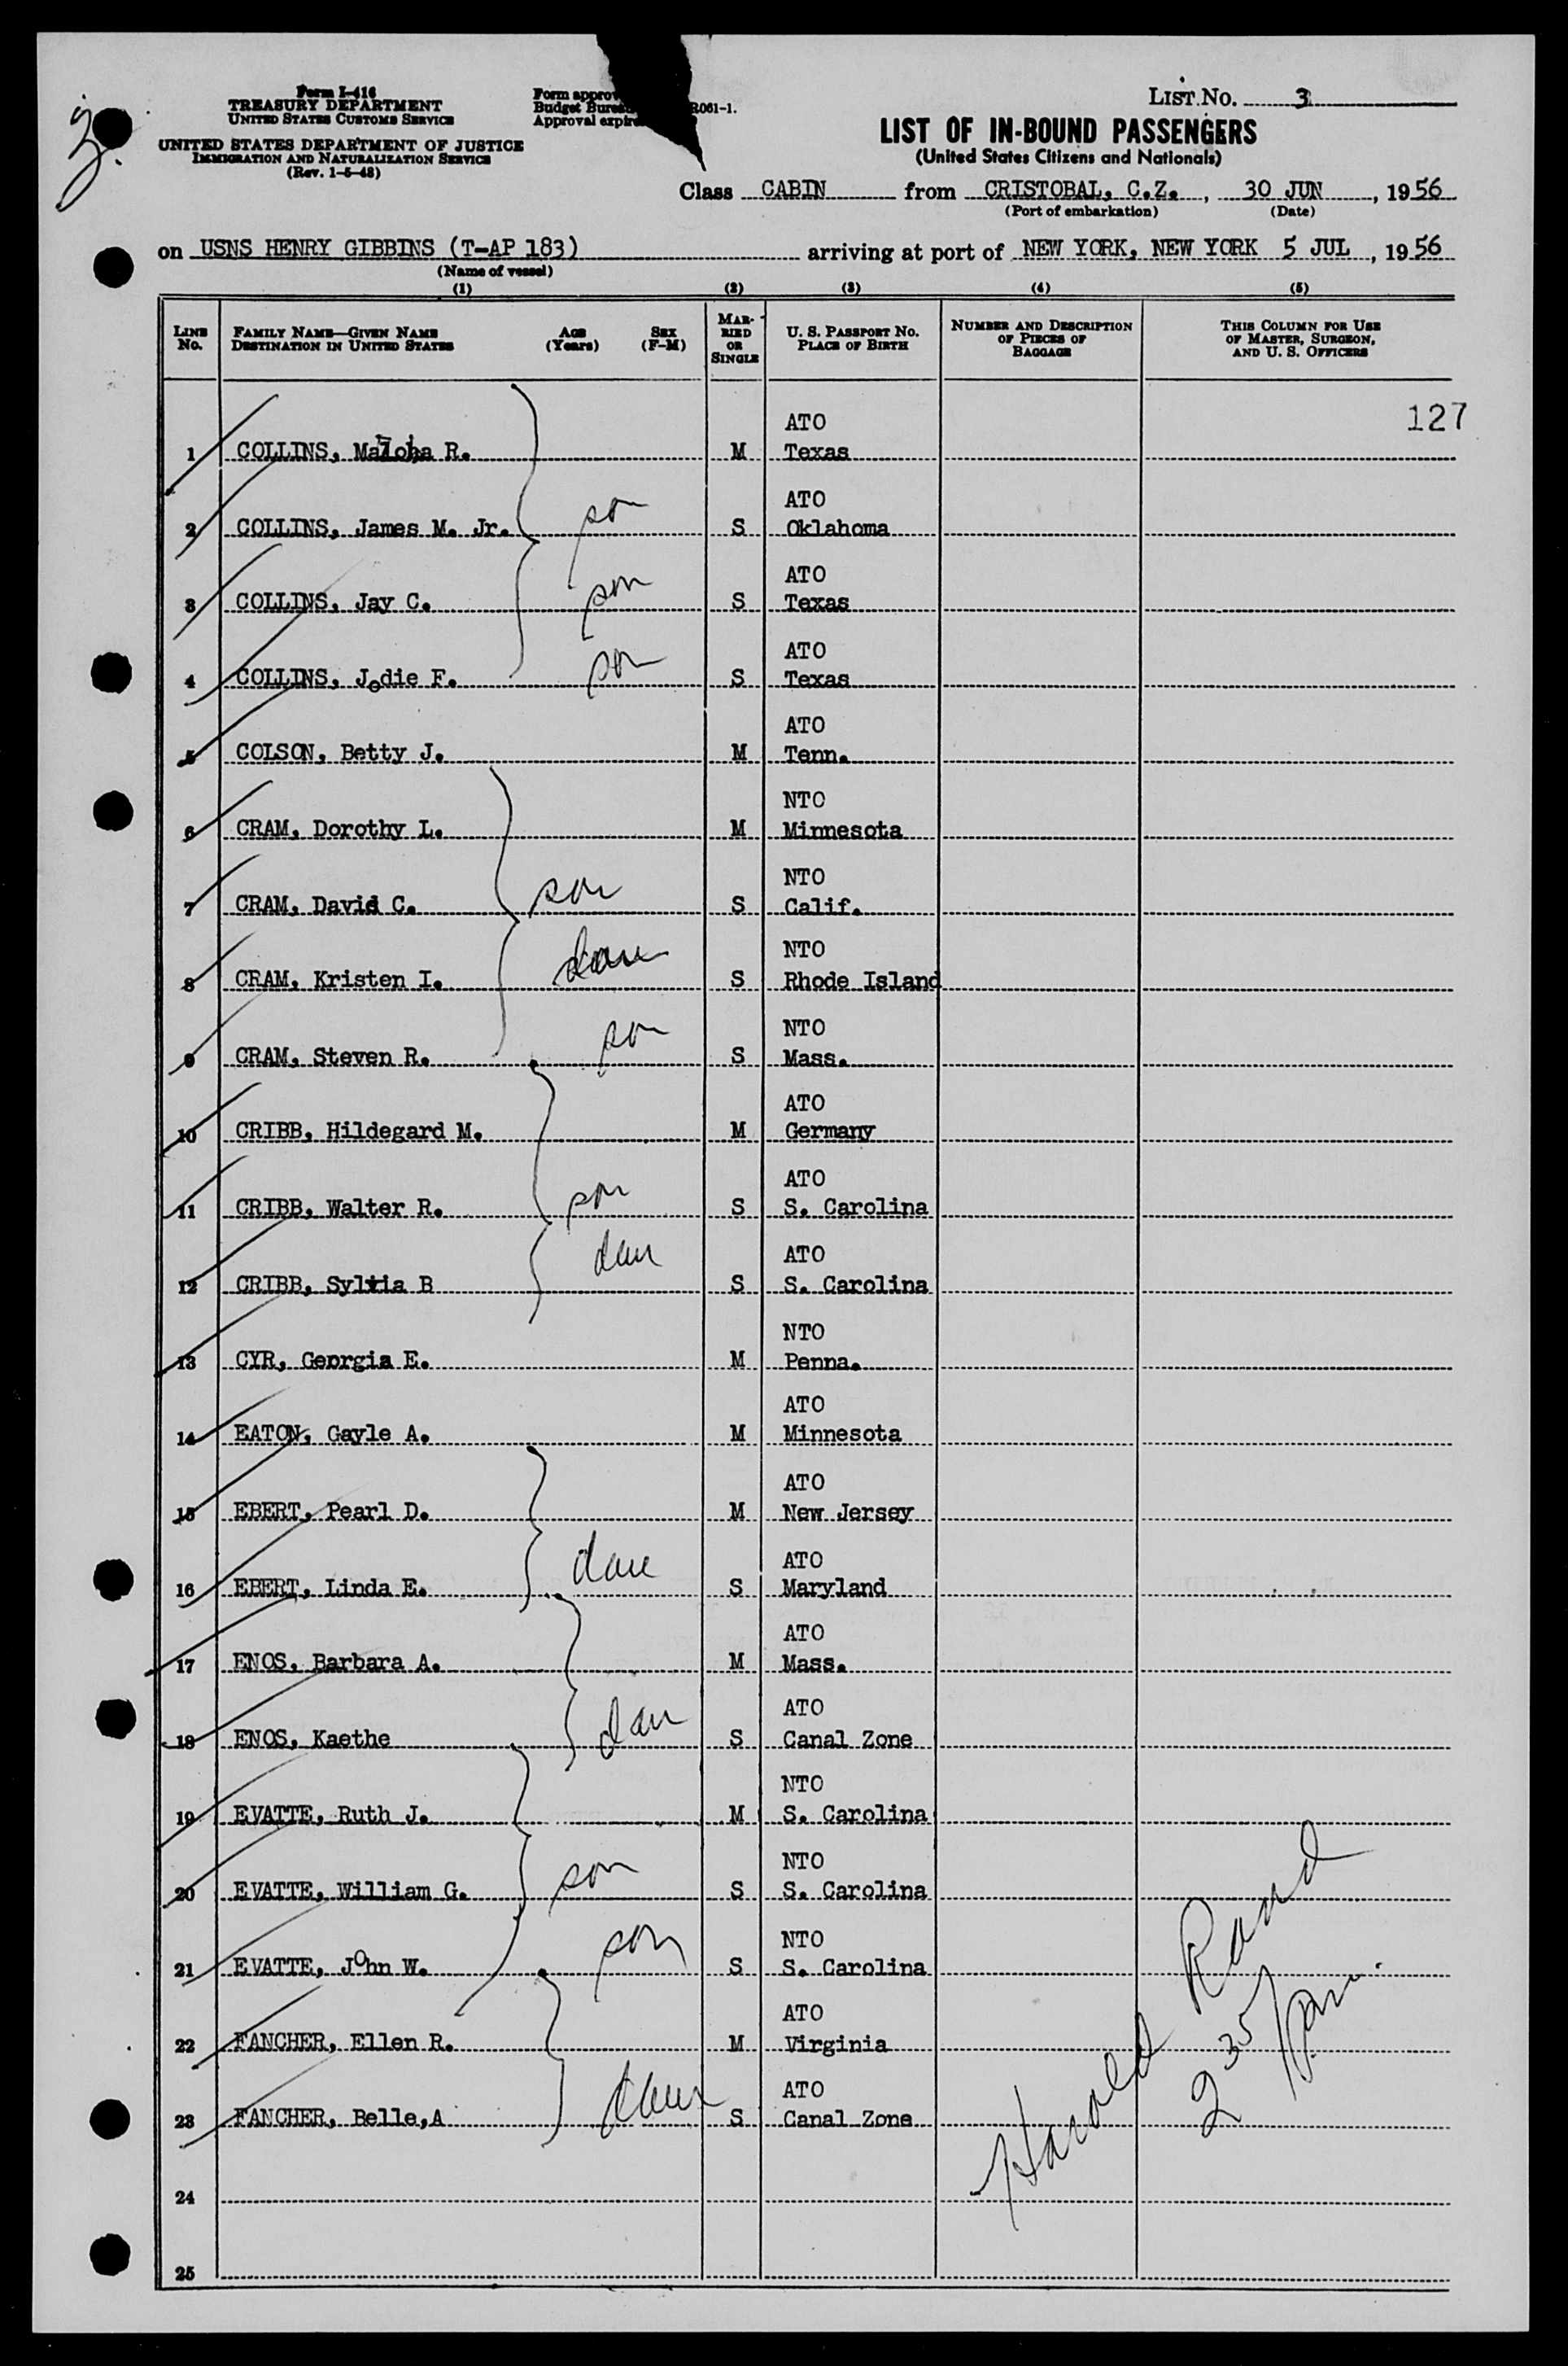 3.
Form I-416
TREASURY DEPARTMENT
UNITED STATES CUSTOMS SERVICE
UNITED STATES DEPARTMENT OF JUSTICE
IMMIGRATION AND NATURALIZATION SERVICE
(Rev. 1-5-48)
Form approv
Budget Bureau R061-1.
Approval expire
LIST No. 3
LIST OF IN-BOUND PASSENGERS
(United States Citizens and Nationals)
Class CABIN from CRISTOBAL, C.Z., 30 JUN, 1956
(Port of embarkation) (Date)
on USNS HENRY GIBBINS (T-AP 183) arriving at port of NEW YORK, NEW YORK 5 JUL, 1956
(Name of vessel)
(1) (2) (3) (4) (5)
LINE No. FAMILY NAME—GIVEN NAME DESTINATION IN UNITED STATES AGE (Years) SEX (F-M) MARRIED OR SINGLE U. S. PASSPORT No. PLACE OF BIRTH NUMBER AND DESCRIPTION OF PIECES OF BAGGAGE THIS COLUMN FOR USE OF MASTER, SURGEON, AND U. S. OFFICERS
127
ATO
1 COLLINS, R. M Texas
ATO
2 COLLINS, James M. Jr. son S Oklahoma
ATO
3 COLLINS, Jay C. son S Texas
ATO
4 COLLINS, Jodie F. son S Texas
ATO
5 COLSON, Betty J. M Tenn.
NTO
6 CRAM, Dorothy L. M Minnesota
NTO
7 CRAM, David C. son S Calif.
NTO
8 CRAM, Kristen I. dau S Rhode Island
NTO
9 CRAM, Steven R. son S Mass.
ATO
10 CRIBB, Hildegard M. M Germany
ATO
11 CRIBB, Walter R. son S S. Carolina
ATO
12 CRIBB, Sylvia B dau S S. Carolina
NTO
13 CYR, Georgia E. M Penna.
ATO
14 EATON, Gayle A. M Minnesota
ATO
15 EBERT, Pearl D. M New Jersey
ATO
16 EBERT, Linda E. dau S Maryland
ATO
17 ENOS, Barbara A. M Mass.
ATO
18 ENOS, Kaethe dau S Canal Zone
NTO
19 EVATTE, Ruth J. M S. Carolina
NTO
20 EVATTE, William G. son S S. Carolina
NTO
21 EVATTE, John W. son S S. Carolina
ATO
22 FANCHER, Ellen R. M Virginia
ATO
23 FANCHER, Belle,A dau S Canal Zone
24
25
Harold Rand
2 35/pm.